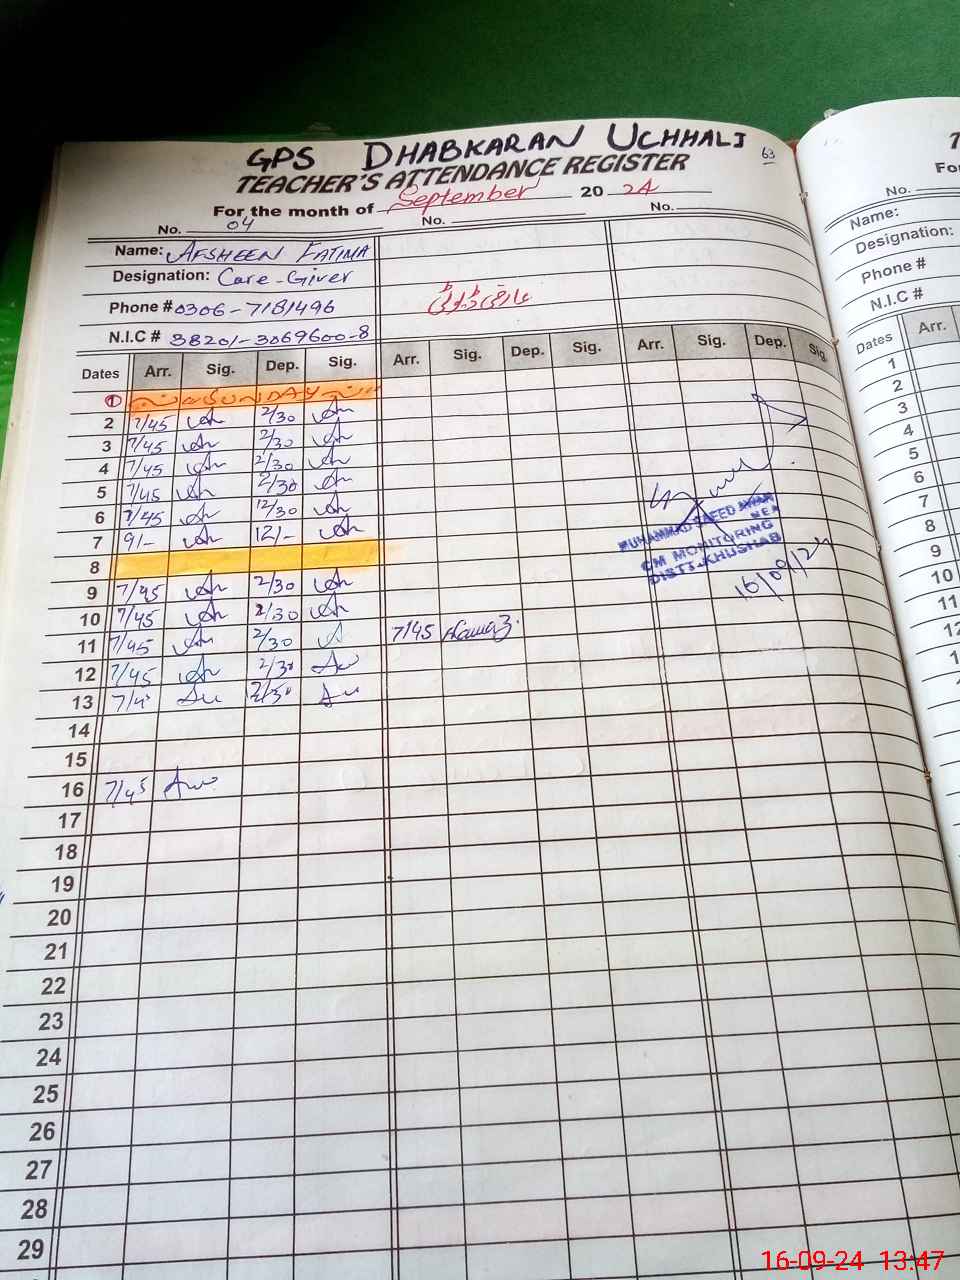 GPS DHABKARAN UCHHALI
63
TEACHER'S ATTENDANCE REGISTER
For the month of September 20 24
No. 04 No. No.
Name: AFSHEEN FATIMA
Designation: Care-Giver
Phone # 0306-7181496
N.I.C # 38201-3069600-8
Dates Arr. Sig. Dep. Sig. Arr. Sig. Dep. Sig. Arr. Sig. Dep. Sig.
1 SUNDAY
2 7/45 2/30
3 7/45 2/30
4 7/45 2/30
5 7/45 2/30
6 7/45 12/30
7 9/- 12/-
8
9 7/45 2/30
10 7/45 2/30
11 7/45 2/30 7/45
12 7/45 2/30
13 2/30
14
15
16 7/45
17
18
19
20
21
22
23
24
25
26
27
28
29
MUHAMMAD SAEED AWAN
CM MONITORING
DISTT. KHUSHAB
16/09/24
For
No.
Name:
Designation:
Phone #
N.I.C #
Dates Arr.
1
2
3
4
5
6
7
8
9
10
11
12
16-09-24 13:47